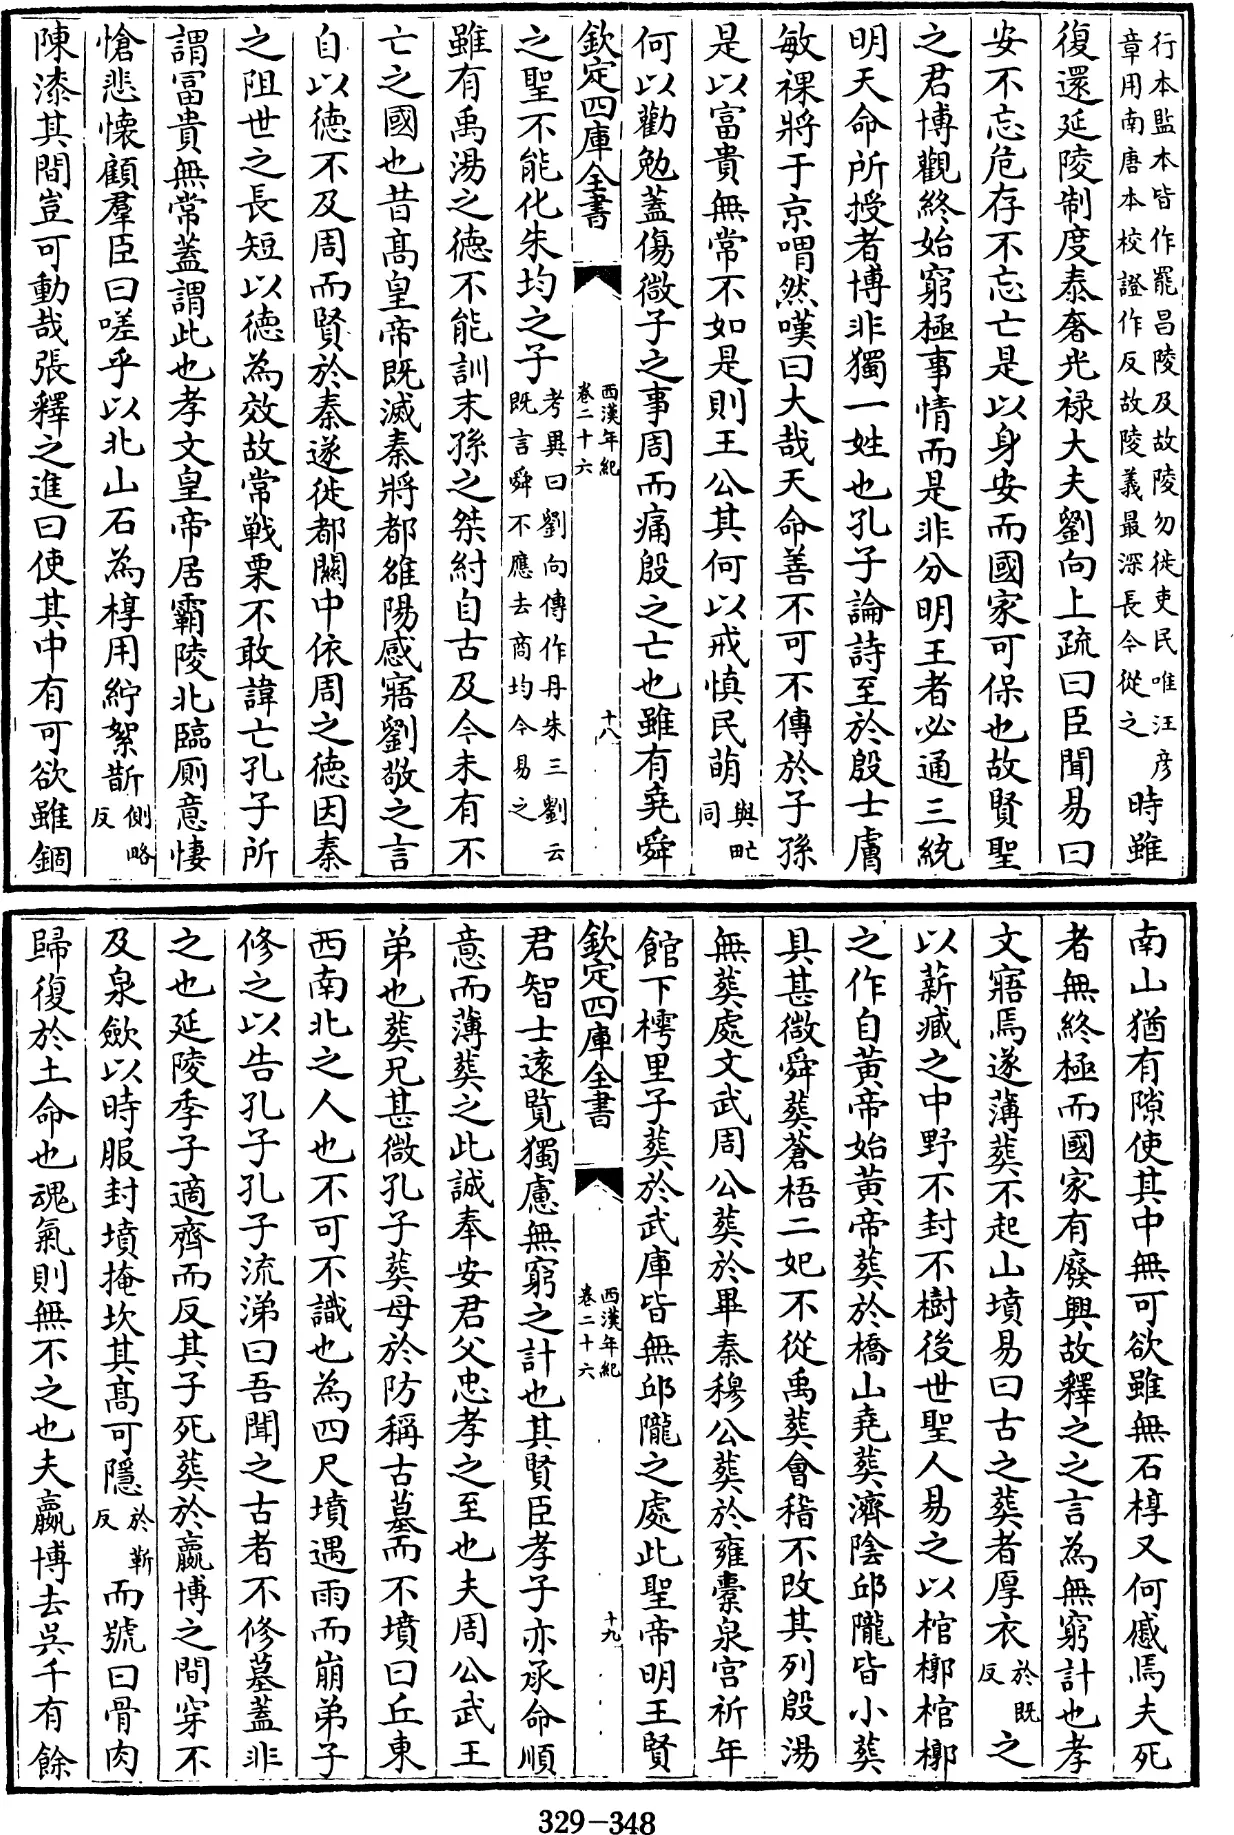 行本監本皆作罷昌陵及故陵勿徙吏民唯汪彦
章用南唐本校證作反故陵義最深長今從之
時雖
復還延陵制度泰奢光禄大夫劉向上疏曰臣聞易曰
安不忘危存不忘亡是以身安而國家可保也故賢聖
之君博觀終始窮極事情而是非分明王者必通三統
明天命所授者博非獨一姓也孔子論詩至於殷士膚
敏祼將于京喟然嘆曰大哉天命善不可不傳於子孫
是以富貴無常不如是則王公其何以戒慎民萌與甿同
何以勸勉蓋傷微子之事周而痛殷之亡也雖有堯舜
欽定四庫全書
西漢年紀
卷二十六
十八
之聖不能化朱均之子考異曰劉向傳作丹朱三劉云
既言舜不應去商均今易之
雖有禹湯之德不能訓末孫之桀紂自古及今未有不
亡之國也昔髙皇帝既滅秦將都雒陽感寤劉敬之言
自以徳不及周而賢於秦遂徙都關中依周之徳因秦
之阻世之長短以徳為效故常戰栗不敢諱亡孔子所
謂冨貴無常蓋謂此也孝文皇帝居霸陵北臨厠意悽
愴悲懐顧羣臣曰嗟乎以北山石為椁用紵絮斮側略反
陳漆其間豈可動哉張釋之進曰使其中有可欲雖錮
南山猶有隙使其中無可欲雖無石椁又何慼焉夫死
者無終極而國家有廢興故釋之之言為無窮計也孝
文寤焉遂薄葬不起山墳易曰古之葬者厚衣於既反之
以薪臧之中野不封不樹後世聖人易之以棺槨棺槨
之作自黄帝始黄帝葬於橋山堯葬濟陰邱隴皆小葬
具甚微舜葬蒼梧二妃不從禹葬會稽不改其列殷湯
無葬處文武周公葬於畢秦穆公葬於雍橐泉宮祈年
館下樗里子葬於武庫皆無邱隴之處此聖帝明王賢
欽定四庫全書
西漢年紀
卷二十六
十九
君智士遠覧獨慮無窮之計也其賢臣孝子亦承命順
意而薄葬之此誠奉安君父忠孝之至也夫周公武王
弟也葬兄甚微孔子葬母於防稱古墓而不墳曰丘東
西南北之人也不可不識也為四尺墳遇雨而崩弟子
修之以告孔子孔子流涕曰吾聞之古者不修墓蓋非
之也延陵季子適齊而反其子死葬於嬴博之間穿不
及泉斂以時服封墳掩坎其髙可隱於靳反而號曰骨肉
歸復於土命也魂氣則無不之也夫嬴博去吳千有餘
329-348